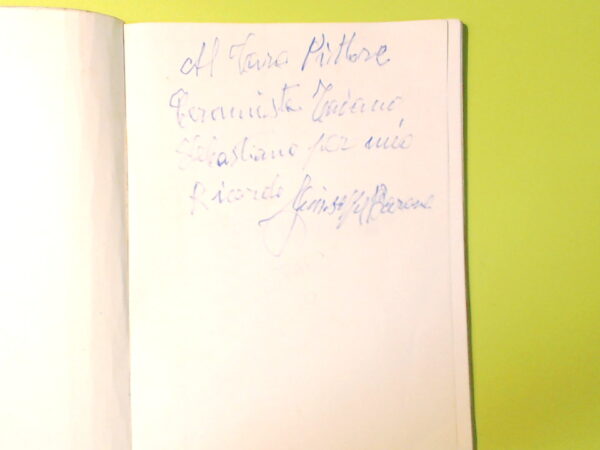 Al Caro Pittore
Ceramista
Sebastiano per mio
Ricordo Giuseppe Barone